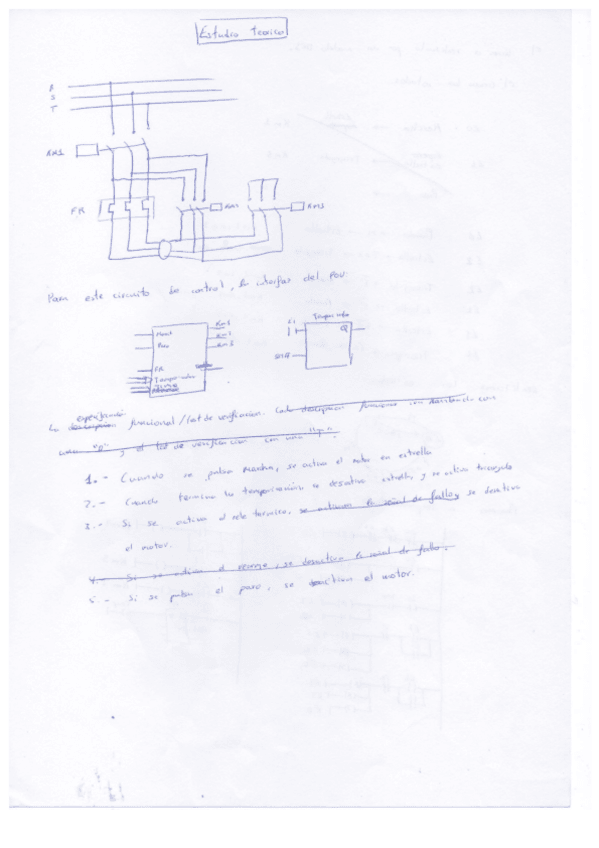 Estudio teorico
R
S
T
KM1
FR
KM3
Para este circuito de control, la interfaz del POU
Temporizador
Km1
Km2
Km3
Q
Marcha
Paro
FR
Temporizador
especificación
La descripcion funcional / test de verificacion. Cada descripcion funciona con
una "D" y el test de verificacion con una
1.- Cuando se pulsa marcha, se activa el motor en estrella
2.- Cuando termina la temporización se desativa estrella y se activa triangulo
3.- Si se activa el rele termico, se activara la señal de fallo, se desativa
el motor.
4.- Si se activa el rearme, se desactiva la señal de fallo.
5.- Si se pulsa el paro, se desactiva el motor.